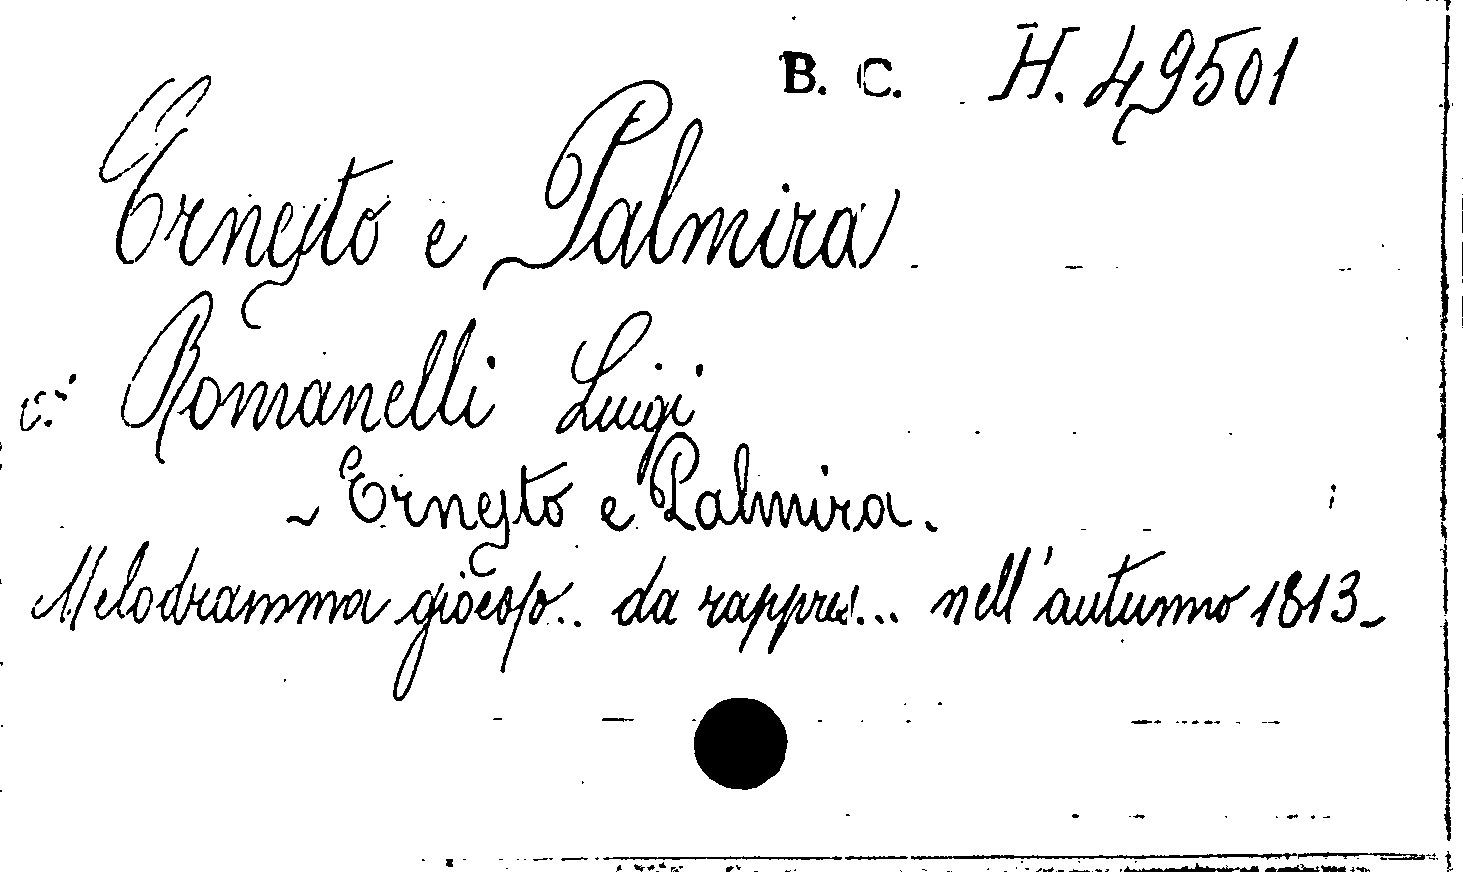 B. C. H. 49501
Ernesto e Palmira
c: Romanelli Luigi
~ Ernesto e Palmira.
Melodramma giocoso.. da rappres... nell'autunno 1813_